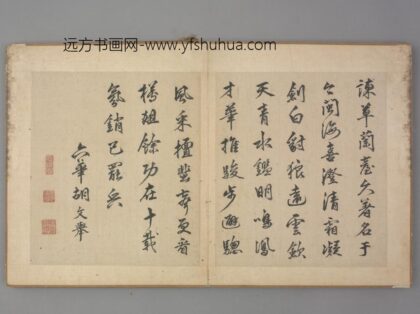 远方书画网-www.yfshuhua.com
諫草蘭臺久著名于
今閩海喜澄清霜凝
劍白豺狼遠雲斂
天青水鑑明鳴鳳
才華推駿步避驄
風采擅蜚聲更看
樽俎餘功在十載
氛銷已罷兵
六華胡文舉